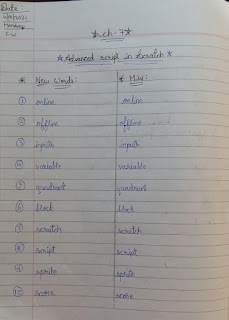 Date:
Monday
C.W
* ch-7 *
* Advanced script in Scratch *
* New Words: * M.W:
① online online
② offline offline
③ inputs inputs
④ variable variable
⑤ quadrant quadrant
⑥ block block
⑦ scratch scratch
⑧ script script
⑨ sprite sprite
⑩ score score